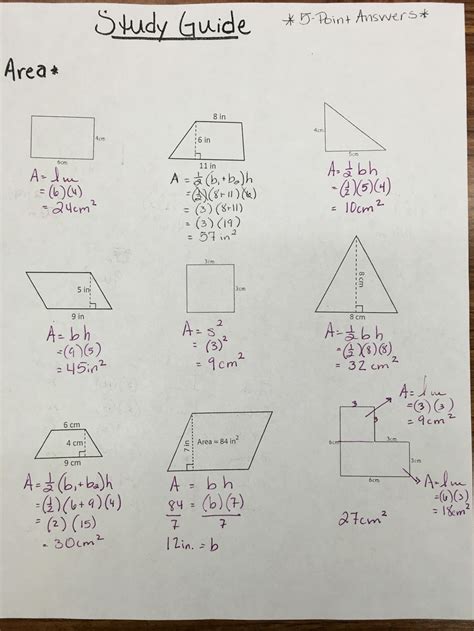 Study Guide
*5-Point Answers*
Area*
4cm
6cm
A = lw
= (6)(4)
= 24cm²
8 in
6 in
11 in
A = ½ (b₁+b₂)h
= (½)(8+11)(6)
= (3)(8+11)
= (3)(19)
= 57in²
4cm
5cm
A = ½ bh
= (½)(5)(4)
= 10cm²
5 in
9 in
A = bh
= (9)(5)
= 45in²
3cm
3cm
A = s²
= (3)²
= 9cm²
8 cm
8 cm
A = ½ bh
= (½)(8)(8)
= 32 cm²
6 cm
4 cm
9 cm
A = ½ (b₁+b₂)h
= (½)(6+9)(4)
= (2)(15)
= 30cm²
7 in
Area = 84 in²
A = bh
84 = (b)(7)
7 7
12in. = b
3
3
6cm
3cm
3cm
6cm
A = lw
= (3)(3)
= 9cm²
A = lw
= (6)(3)
= 18cm²
27cm²